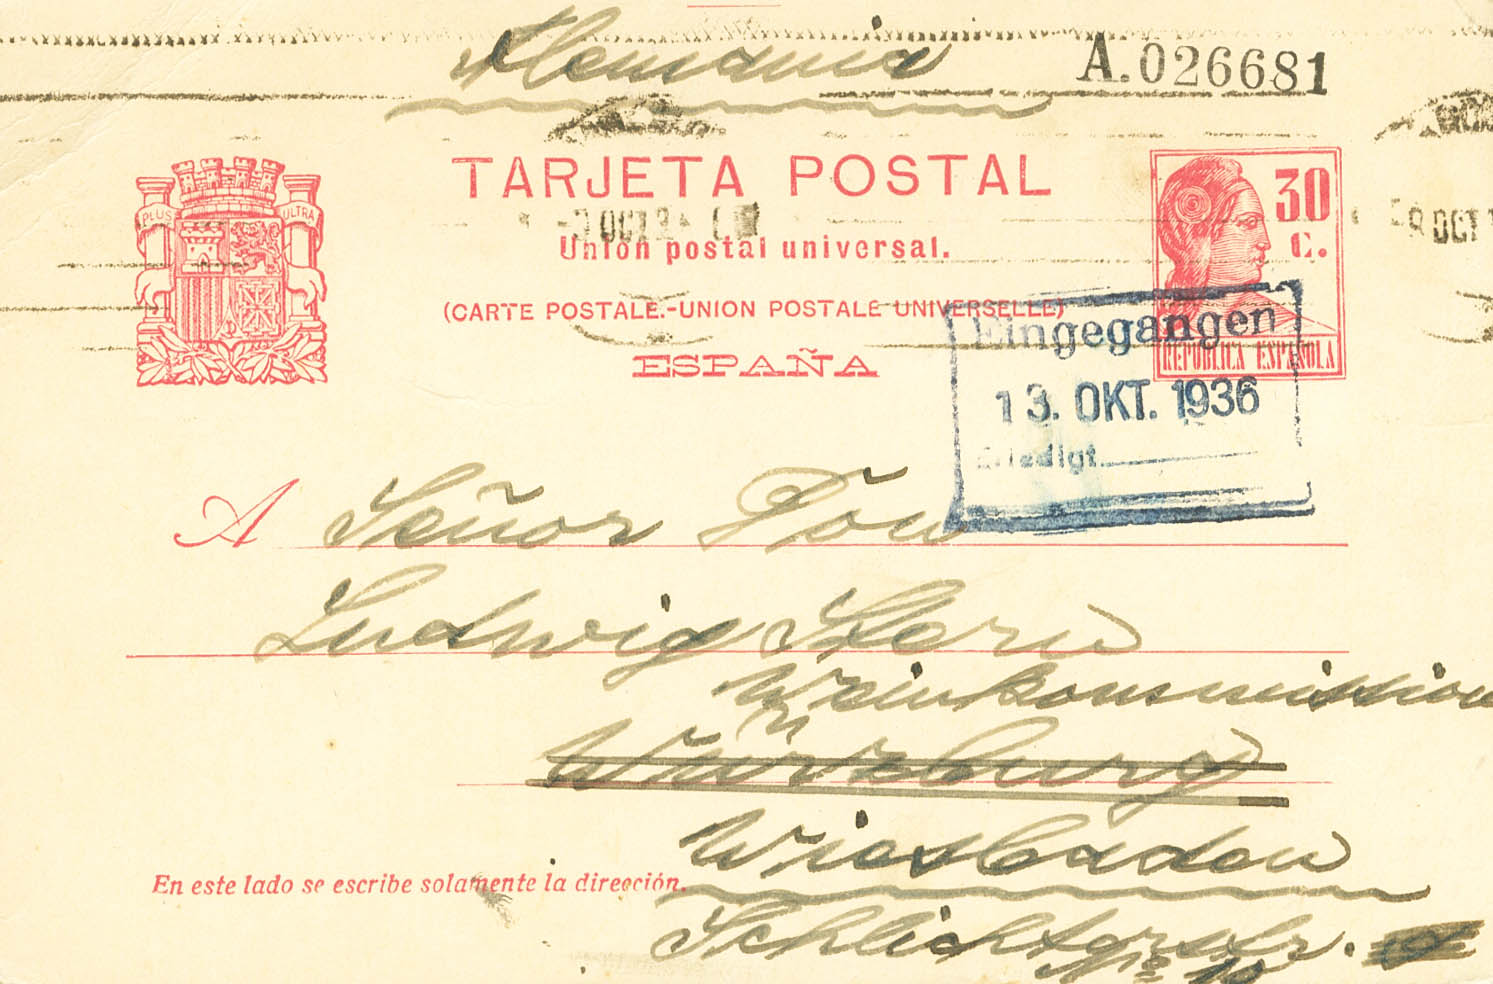 Alemania
A.026681
TARJETA POSTAL
OCT
8 OCT
Unión postal universal.
(CARTE POSTALE.-UNION POSTALE UNIVERSELLE)
ESPAÑA
PLUS ULTRA
30
C.
REPUBLICA ESPAÑOLA
Eingegangen
13. OKT. 1936
Erledigt
A Señor Don
Ludwig Stern
Weinkommission
Würzburg
Wiesbaden
En este lado se escribe solamente la dirección.
Schlichterstr.
Nº 10